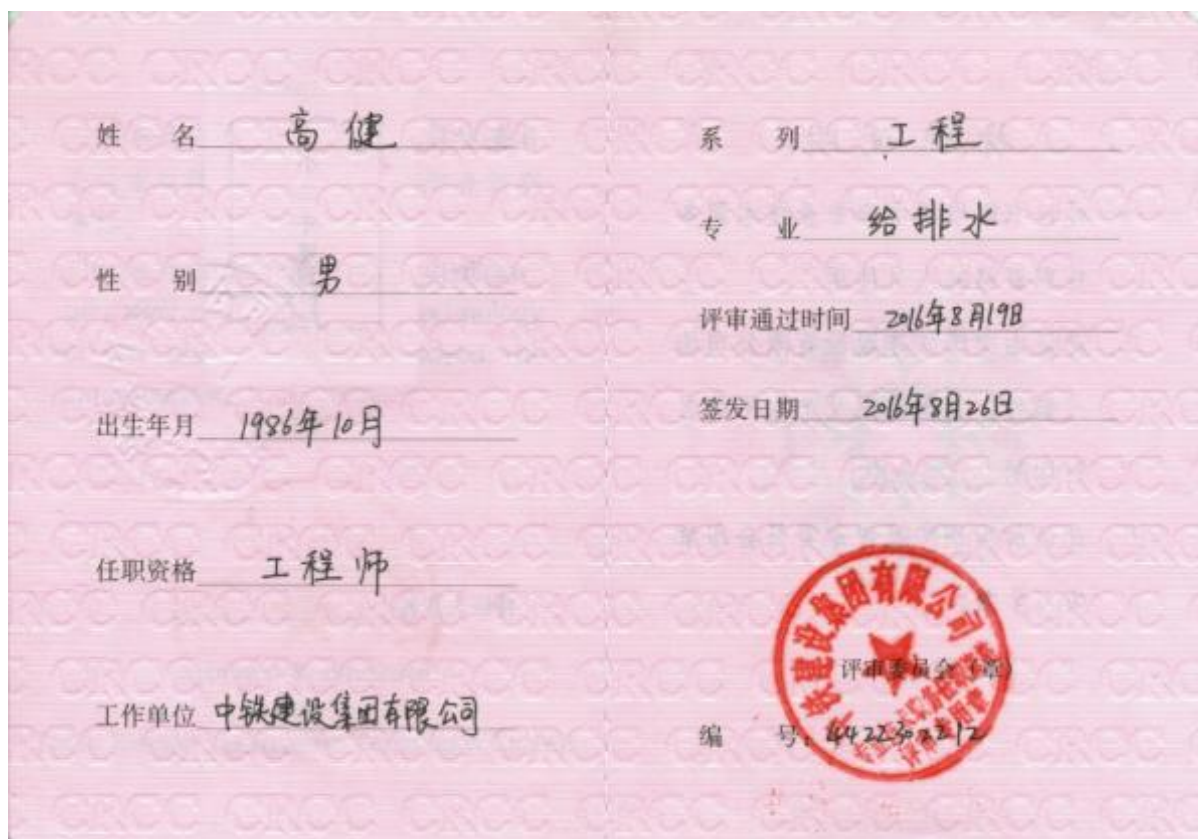 姓 名 高健
性 别 男
出生年月 1986年10月
任职资格 工程师
工作单位 中铁建设集团有限公司
系 列 工程
专 业 给排水
评审通过时间 2016年8月19日
签发日期 2016年8月26日
中铁建设集团有限公司
评审委员会（章）
编 号：4422302212
CRCC